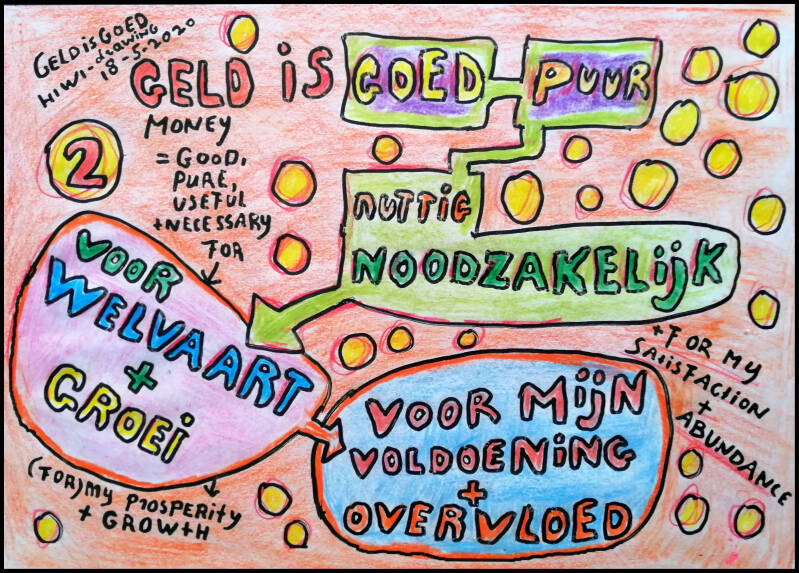 GELD is GOED
HIWI-drawing
18-5-2020
GELD is GOED PUUR
2
MONEY
= GOOD,
PURE,
USEFUL
+ NECESSARY
FOR
NUTTIG
NOODZAKELijK
VOOR
WELVAART
+
GROEi
+ FOR MY
SATiSFACTiON
+
ABUNDANCE
VOOR MijN
VOLDOENiNG
+
OVERVLOED
(FOR) MY PROSPERiTY
+ GROWTH